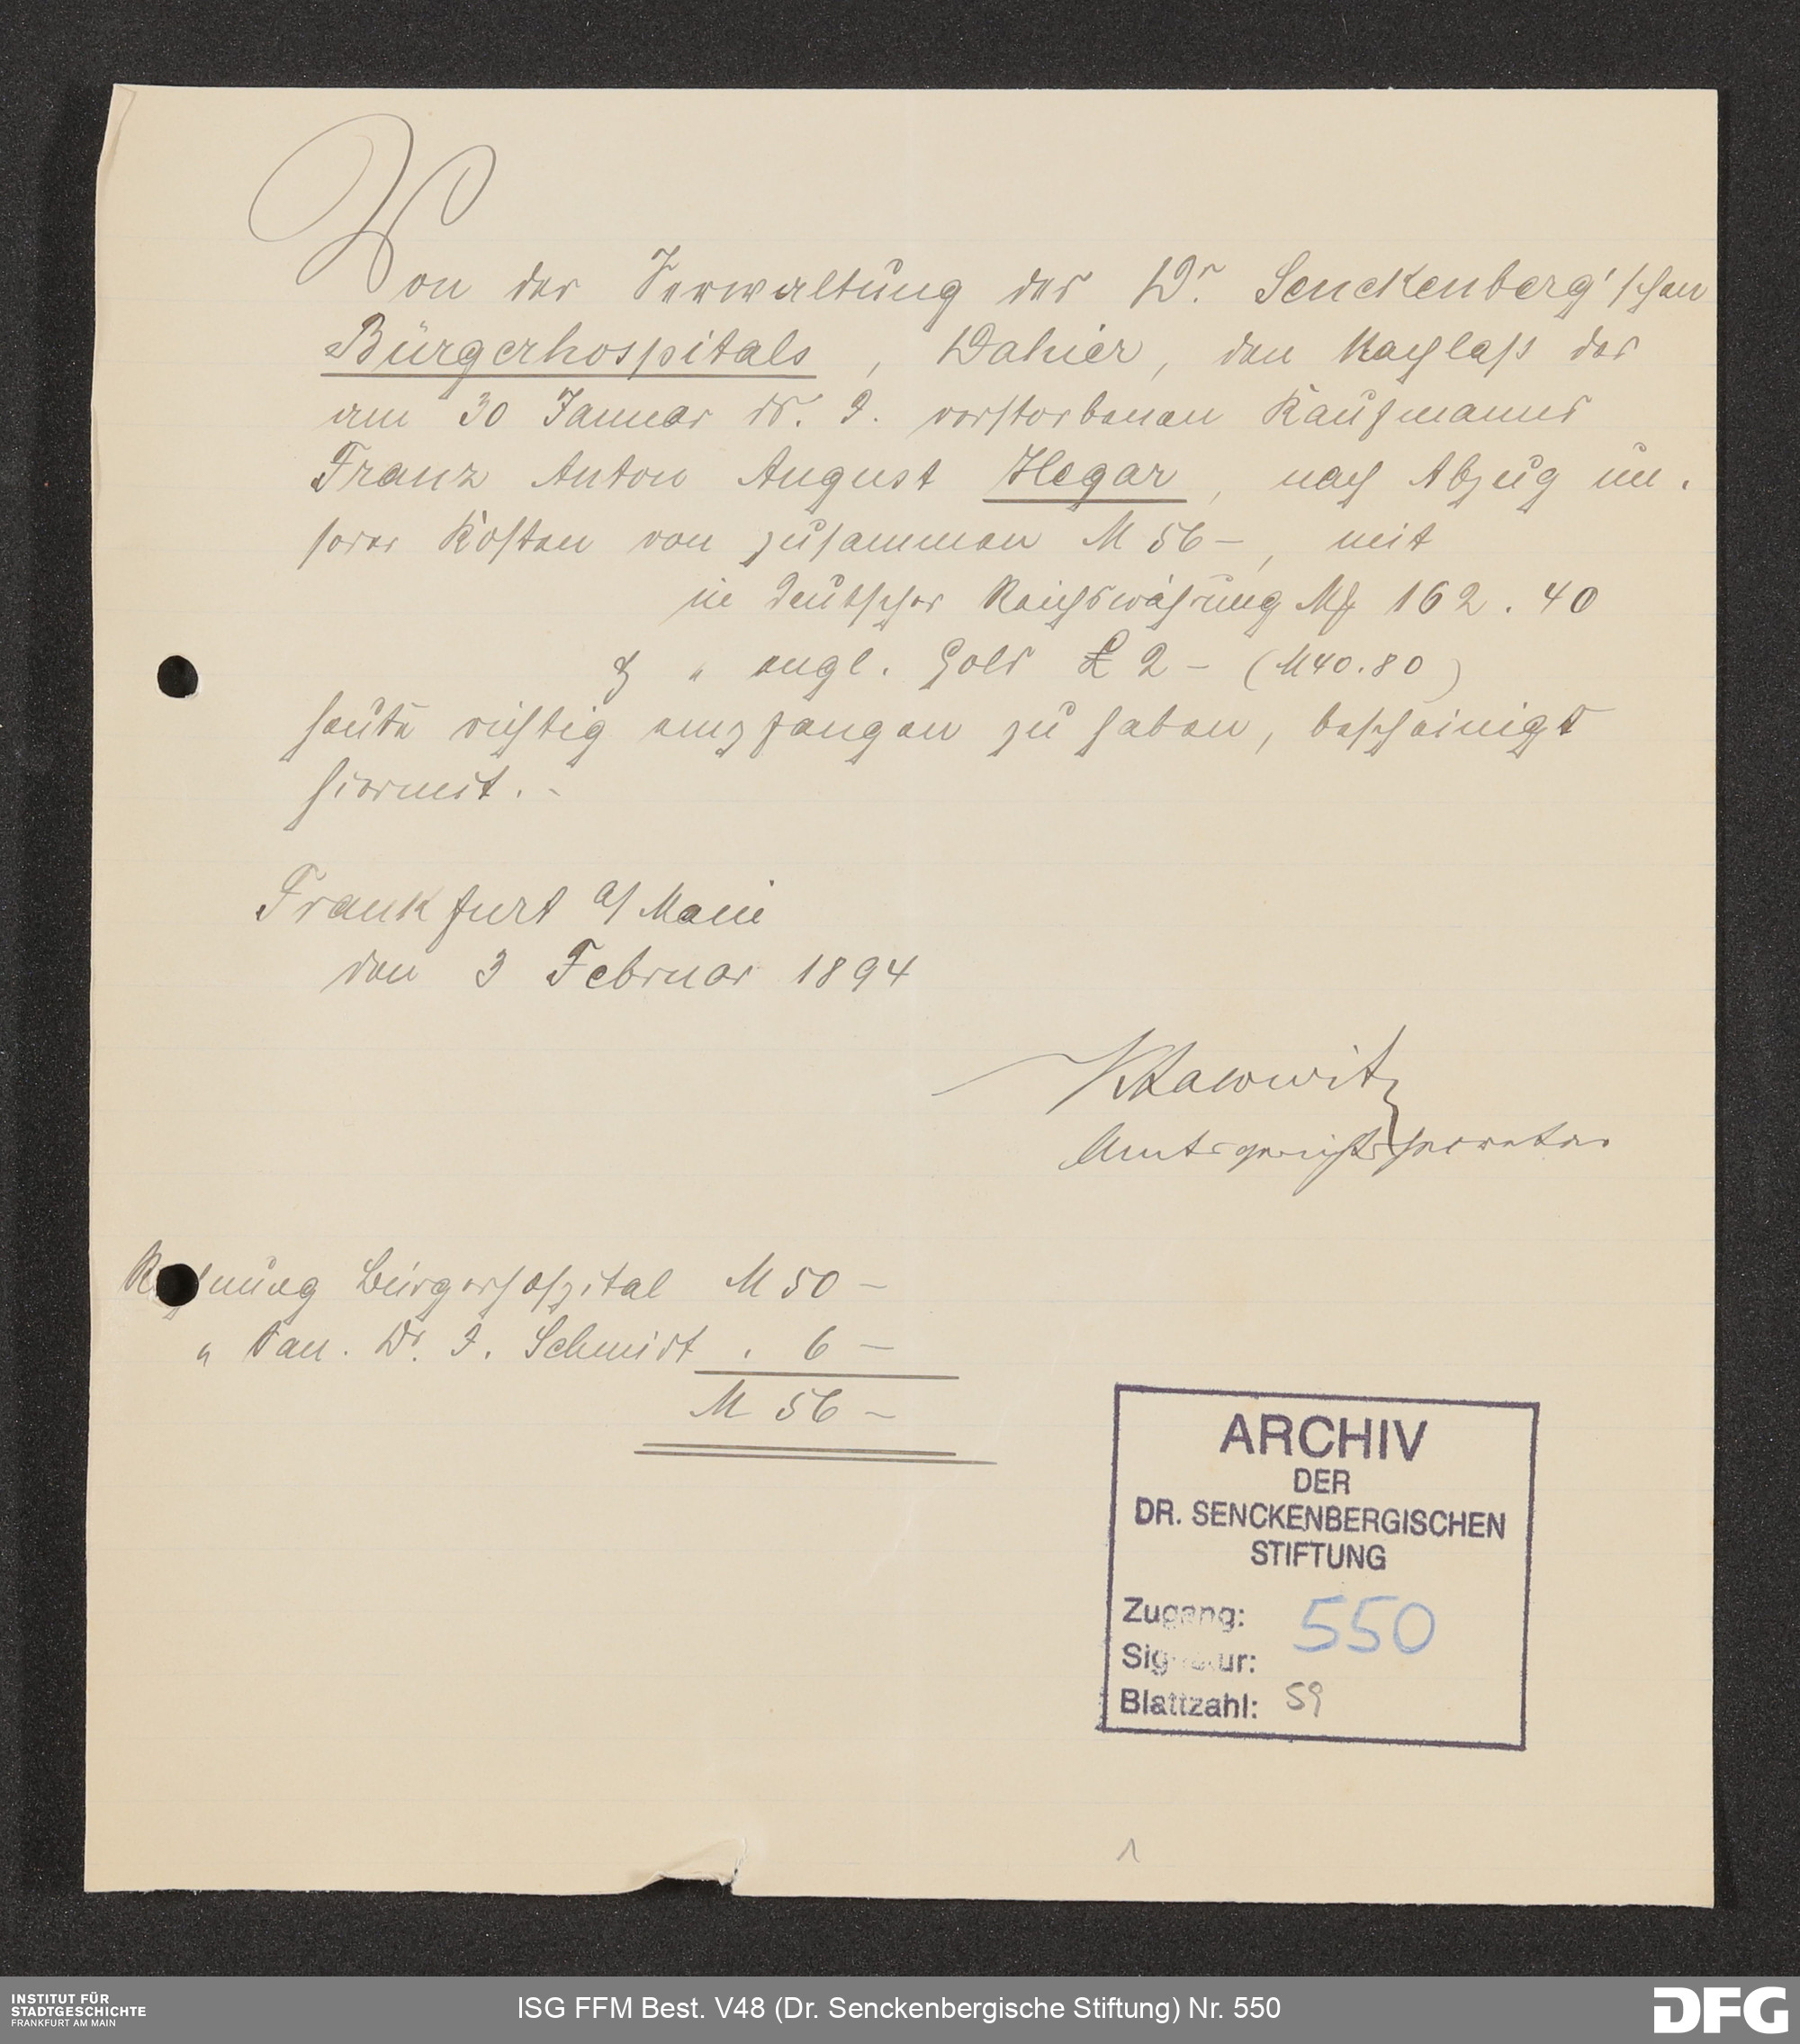 Von der Verwaltung des Dr. Senckenberg'schen
Bürgerhospitals, Dahier, den Nachlaß des
am 30 Januar ds. J. verstorbenen Kaufmanns
Franz Anton August Hegar, nach Abzug un.
serer Kosten von zusammen M 56 –, mit
in deutscher Reichswährung M 162.40
& " engl. Gold £ 2 – (M 40.80)
heute richtig empfangen zu haben, bescheinigt
hiermit. –
Frankfurt a/ Main
den 3 Februar 1894
Amtsgerichtssecretär
Rechnung Bürgerhospital M 50 –
" San. Dr. J. Schmidt . 6 –
M 56 –
ARCHIV
DER
DR. SENCKENBERGISCHEN
STIFTUNG
Zugang: 550
Signatur:
Blattzahl: 59
1
INSTITUT FÜR
STADTGESCHICHTE
FRANKFURT AM MAIN
ISG FFM Best. V48 (Dr. Senckenbergische Stiftung) Nr. 550
DFG